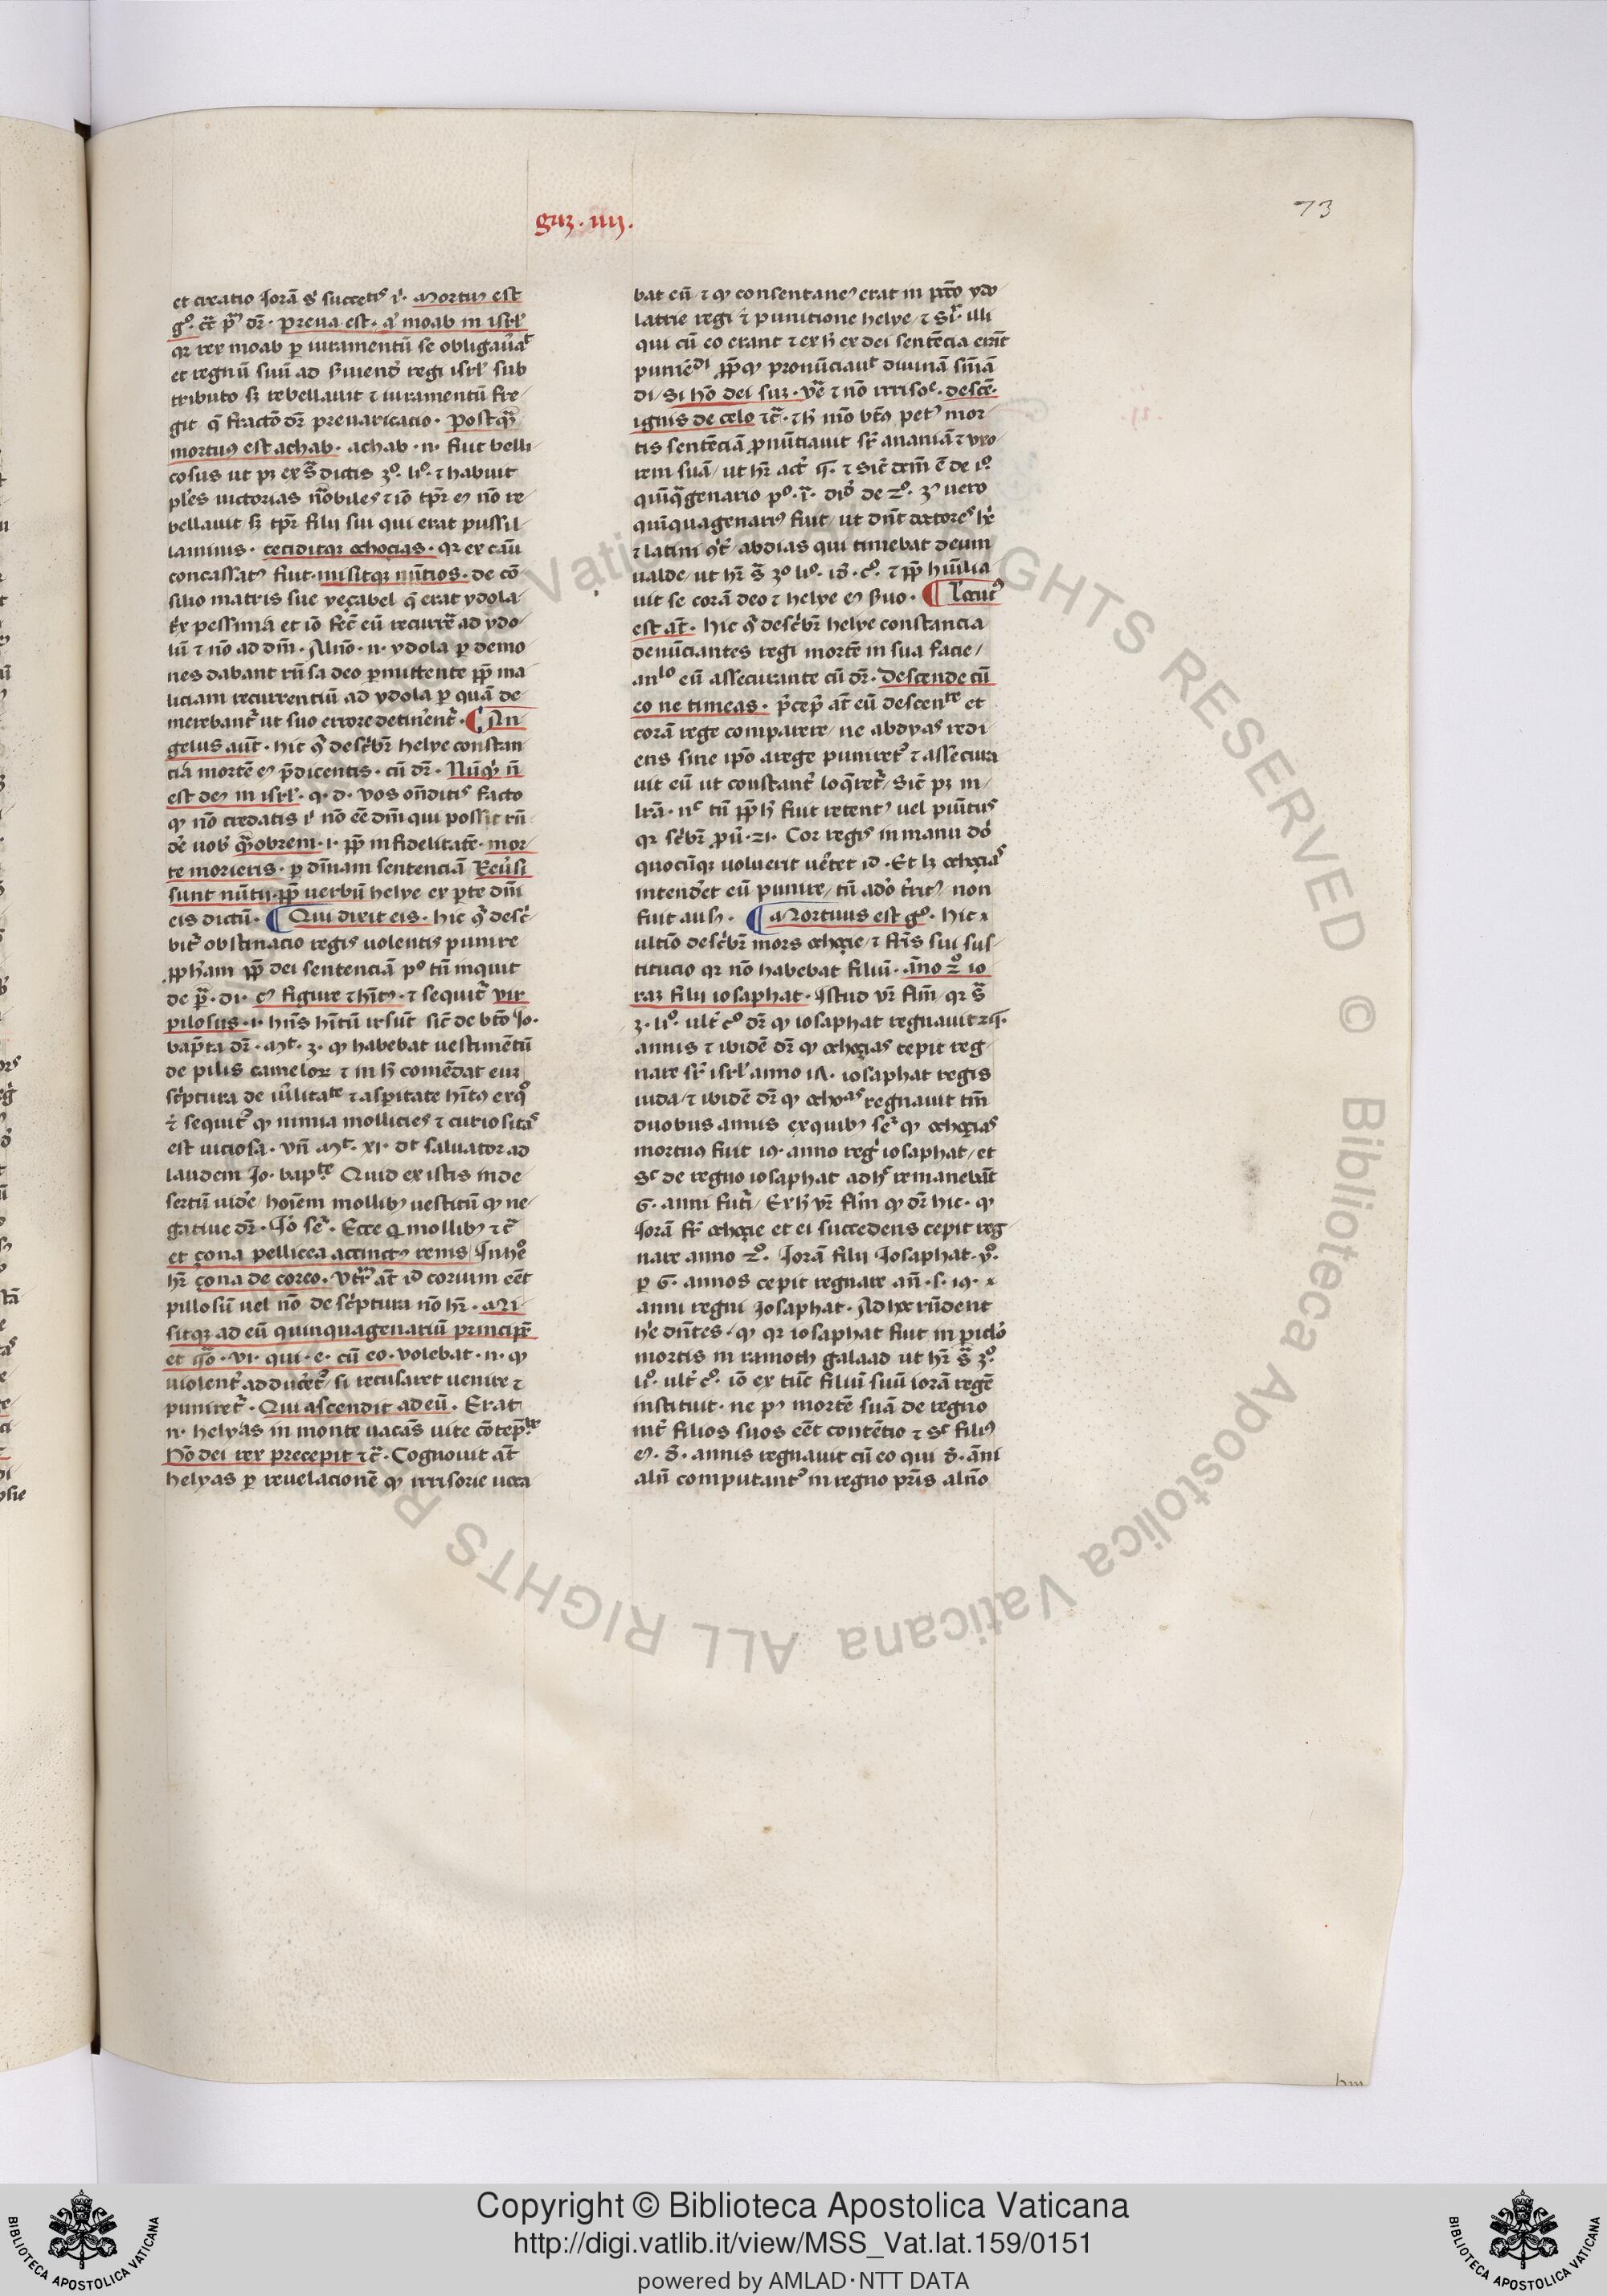 73
guʒ · iiij ·
et creatio Jorā s' succetis i · Mortuꝰ est
g°. cc̄ pᵃ dr̄ · preua est · qͥ moab in isrl'
qꝛ rex moab ꝑ iuramentū se obligauāt
et regnū suū ad s̄uiend' regi isrl' sub
tributo sꝫ rebellauit ⁊ iuramentū fre
git q̄ fractō dr̄ preuaricatio · Postqᵃ
mortuꝰ est achab · achab · n · fuit belli
cosus ut pꝫ ex sᵃ dictis 3° · li° · ⁊ habuit
ples uictorias nobiles ⁊ iō tpr̄ eꝰ nō re
bellauit sꝫ tpr̄ filij sui qui erat pussil
laminis · ceciditqꝫ ochoçias · qꝛ ex casu
concassatꝰ fuit · misitqꝫ nūtios · de cō
silio matris sue yeçabel q̄ erat ydola
tr̄x pessima et iō fec̄ eū recurre ad ydo
lū ⁊ nō ad dm̄ · Alnō · n · ydola ꝑ demo
nes dabant rn̄sa deo ꝑmittente ꝓpꝑ ma
liciam recurrentiū ad ydola ꝑ quā de
merebant' ut suo errore detinent' · ¶ An
gelus aut̄ · hic ꝯͣ describr̄ helye constan
cia mortē eꝰ p̄dicentis · cū dr̄ · Nūqͥ n̄
est deꝰ in isrl' · q · d · vos on̄ditis facto
ꝙ nō credatis i nō eē dm̄ qui possit rn̄
dē uob' qᵃobrem · i · ꝓpꝑ infidelitatē · mor
te morieris · ꝑ diuinam sentenciā Reūsi
sunt nūtij · ꝓpꝑ uerbū helye ex ꝑte dm̄
eis dictū · ¶ Qui dixit eis · hic ꝯͣ desc'
bit' obstinatio regis uolentis punire
ꝓpham ꝓpꝑ dei sentenciā p° tn̄ inquit
de pᵃ · di · cꝰ figure ⁊ hītꝰ · ⁊ sequit' vir
pilosus · i · hn̄s hītū irsut̄ sic̄ de btō Jo ·
bap̄ta dr̄ · Mt · 3 · ꝙ habebat uestimētū
de pilis camelor ⁊ in hͦ comēdat eum
sc'ptura de uilitate ⁊ aspitate hītꝰ ex q°
⁊ sequit' ꝙ nimia mollicies ⁊ curiositas
est uiciosa · vn̄ Mt · xi · dt saluator ad
laudem Jo · bapte Quid existis inde
sertū uide' hoīem mollibꝰ uestitū ꝙ ne
gatiue dr̄ · Jō seͥ · Ecce q mollibꝰ ⁊c̄
et çona pellicea accinctꝰ renis Jnhe°
hr̄ çona de coreo · Vtrᵐ at̄ id corium eēt
pillosū uel nō de sc'ptura nō hr̄ · Mi
sitqꝫ ad eū quinquagenariū principē
et qᵃo · vi · qui · e · cū eo · volebat · n · ꝙ
uiolent' adducet' / si recusaret uenire ⁊
puniret' · Qui ascendit ad eū · Erat
n · helyas in monte uacās uite cōtēpᵗᵉ
Hō dei rex precepit ⁊c̄ · Cognouit at̄
helyas ꝑ reuelacionē ꝙ irrisorie uoca
bat eū / ⁊ ꝙ consentaneꝰ erat in pctō ydo
latrie regi ⁊ punitione helye / ⁊ sil'r illi
qui cū eo erant ⁊ ex hͦ ex dei sentēcia erāt
puniēdi ꝓpꝙ pronūciauit diuinā sn̄iā
di · Si hō dei suꝫ · vē ⁊ nō irrisoe · descē
ignis de celo ⁊c̄ · ⁊ hͦ mō btꝰ petꝰ mor
tis sentēciā ꝓnūtiauit sr̄ ananiā ⁊ vxo
rem suā / ut hr̄ act' 5 · ⁊ sic̄ dcm̄ ē de i°
quīqᵃgenario p° · ī · dr̄ de 2° · 3ꝰ uero
quinquagenariꝰ fuit / ut dn̄t doctores he
⁊ latini ꝯͭ / abdias qui timebat deum
ualde / ut hr̄ sᵃ 3° li° · 18 · c° · ⁊ ꝓpꝑ hūilia
uit se corā deo ⁊ helye eꝰ s̄uo · ¶ Locutꝰ
est at̄ · Hic ꝯͣ describr̄ helye constancia
denūciantes regi mortē in sua facie /
anlo eū assecurante cū dr̄ · Descende cū
eo ne timeas · p̄cep̄ at̄ eū descenᵗᵉ et
corā rege comparere / ne abdyas redi
ens sine ipō a rege puniret' ⁊ assecura
uit eū ut constant' loq̄ret' / sic̄ pꝫ in
lrā · nᶜ tn̄ ꝓpꝑ hͦ fuit retentꝰ uel pun̄tus
qꝛ sc'br̄ prou' · 21 · Cor regis in manu do'
quocūqꝫ uoluerit uētet id · Et lꝫ ochoçias
intend'et eū punire / tn̄ ado' t'ritꝰ non
fuit ausꝰ · ¶ Mortuus est g° · hic x
ultīo describr̄ mors ochoçie / ⁊ fris sui sus
titucio qꝛ nō habebat filiū · Anno 2° io
raꝫ filij iosaphat · Jstud vr̄ flm̄ / qꝛ sᵃ
3 · li° · ult' c° dr̄ ꝙ iosaphat regnauit 25 ·
annis ⁊ ibidē dr̄ ꝙ ochoçias cepit reg
nare sr̄ isrl' anno 17 · iosaphat regis
iuda / ⁊ ibidē dr̄ ꝙ ochoᵃˢ regnauit tm̄
duobus annis ex quibꝰ seͥ ꝙ ochoçias
mortuꝰ fuit 19 · anno reg' iosaphat / et
sͨ de regno iosaphat adhᶜ remanebāt
6 · anni futi / Ex hͦ vr̄ flm̄ ꝙ dr̄ hic · ꝙ
Jorā fr̄ ochoçie et ei succedens cepit reg
nare anno 2° · Jorā filij Josaphat · p° ·
ꝑ 6 · annos cepit regnare an̄ · s · 19 · x
anni regni Josaphat · Ad hoc rn̄dent
he' dn̄tes · ꝙ qꝛ iosaphat fuit in ꝑiclo'
mortis in ramoth galaad ut hr̄ sᵃ 3° ·
li° · ult' c° · iō ex tūc filiū suū iorā regē
instituit · ne pꝰ mortē suā de regno
int' filios suos eēt contētio ⁊ sͨ filiꝰ
eꝰ · 8 · annis regnauit cū eo qui 8 · āni
aln̄ computant' in regno pr̄is aln̄o
hm
Copyright © Biblioteca Apostolica Vaticana
http://digi.vatlib.it/view/MSS_Vat.lat.159/0151
powered by AMLAD·NTT DATA
BIBLIOTECA APOSTOLICA VATICANA
BIBLIOTECA APOSTOLICA VATICANA